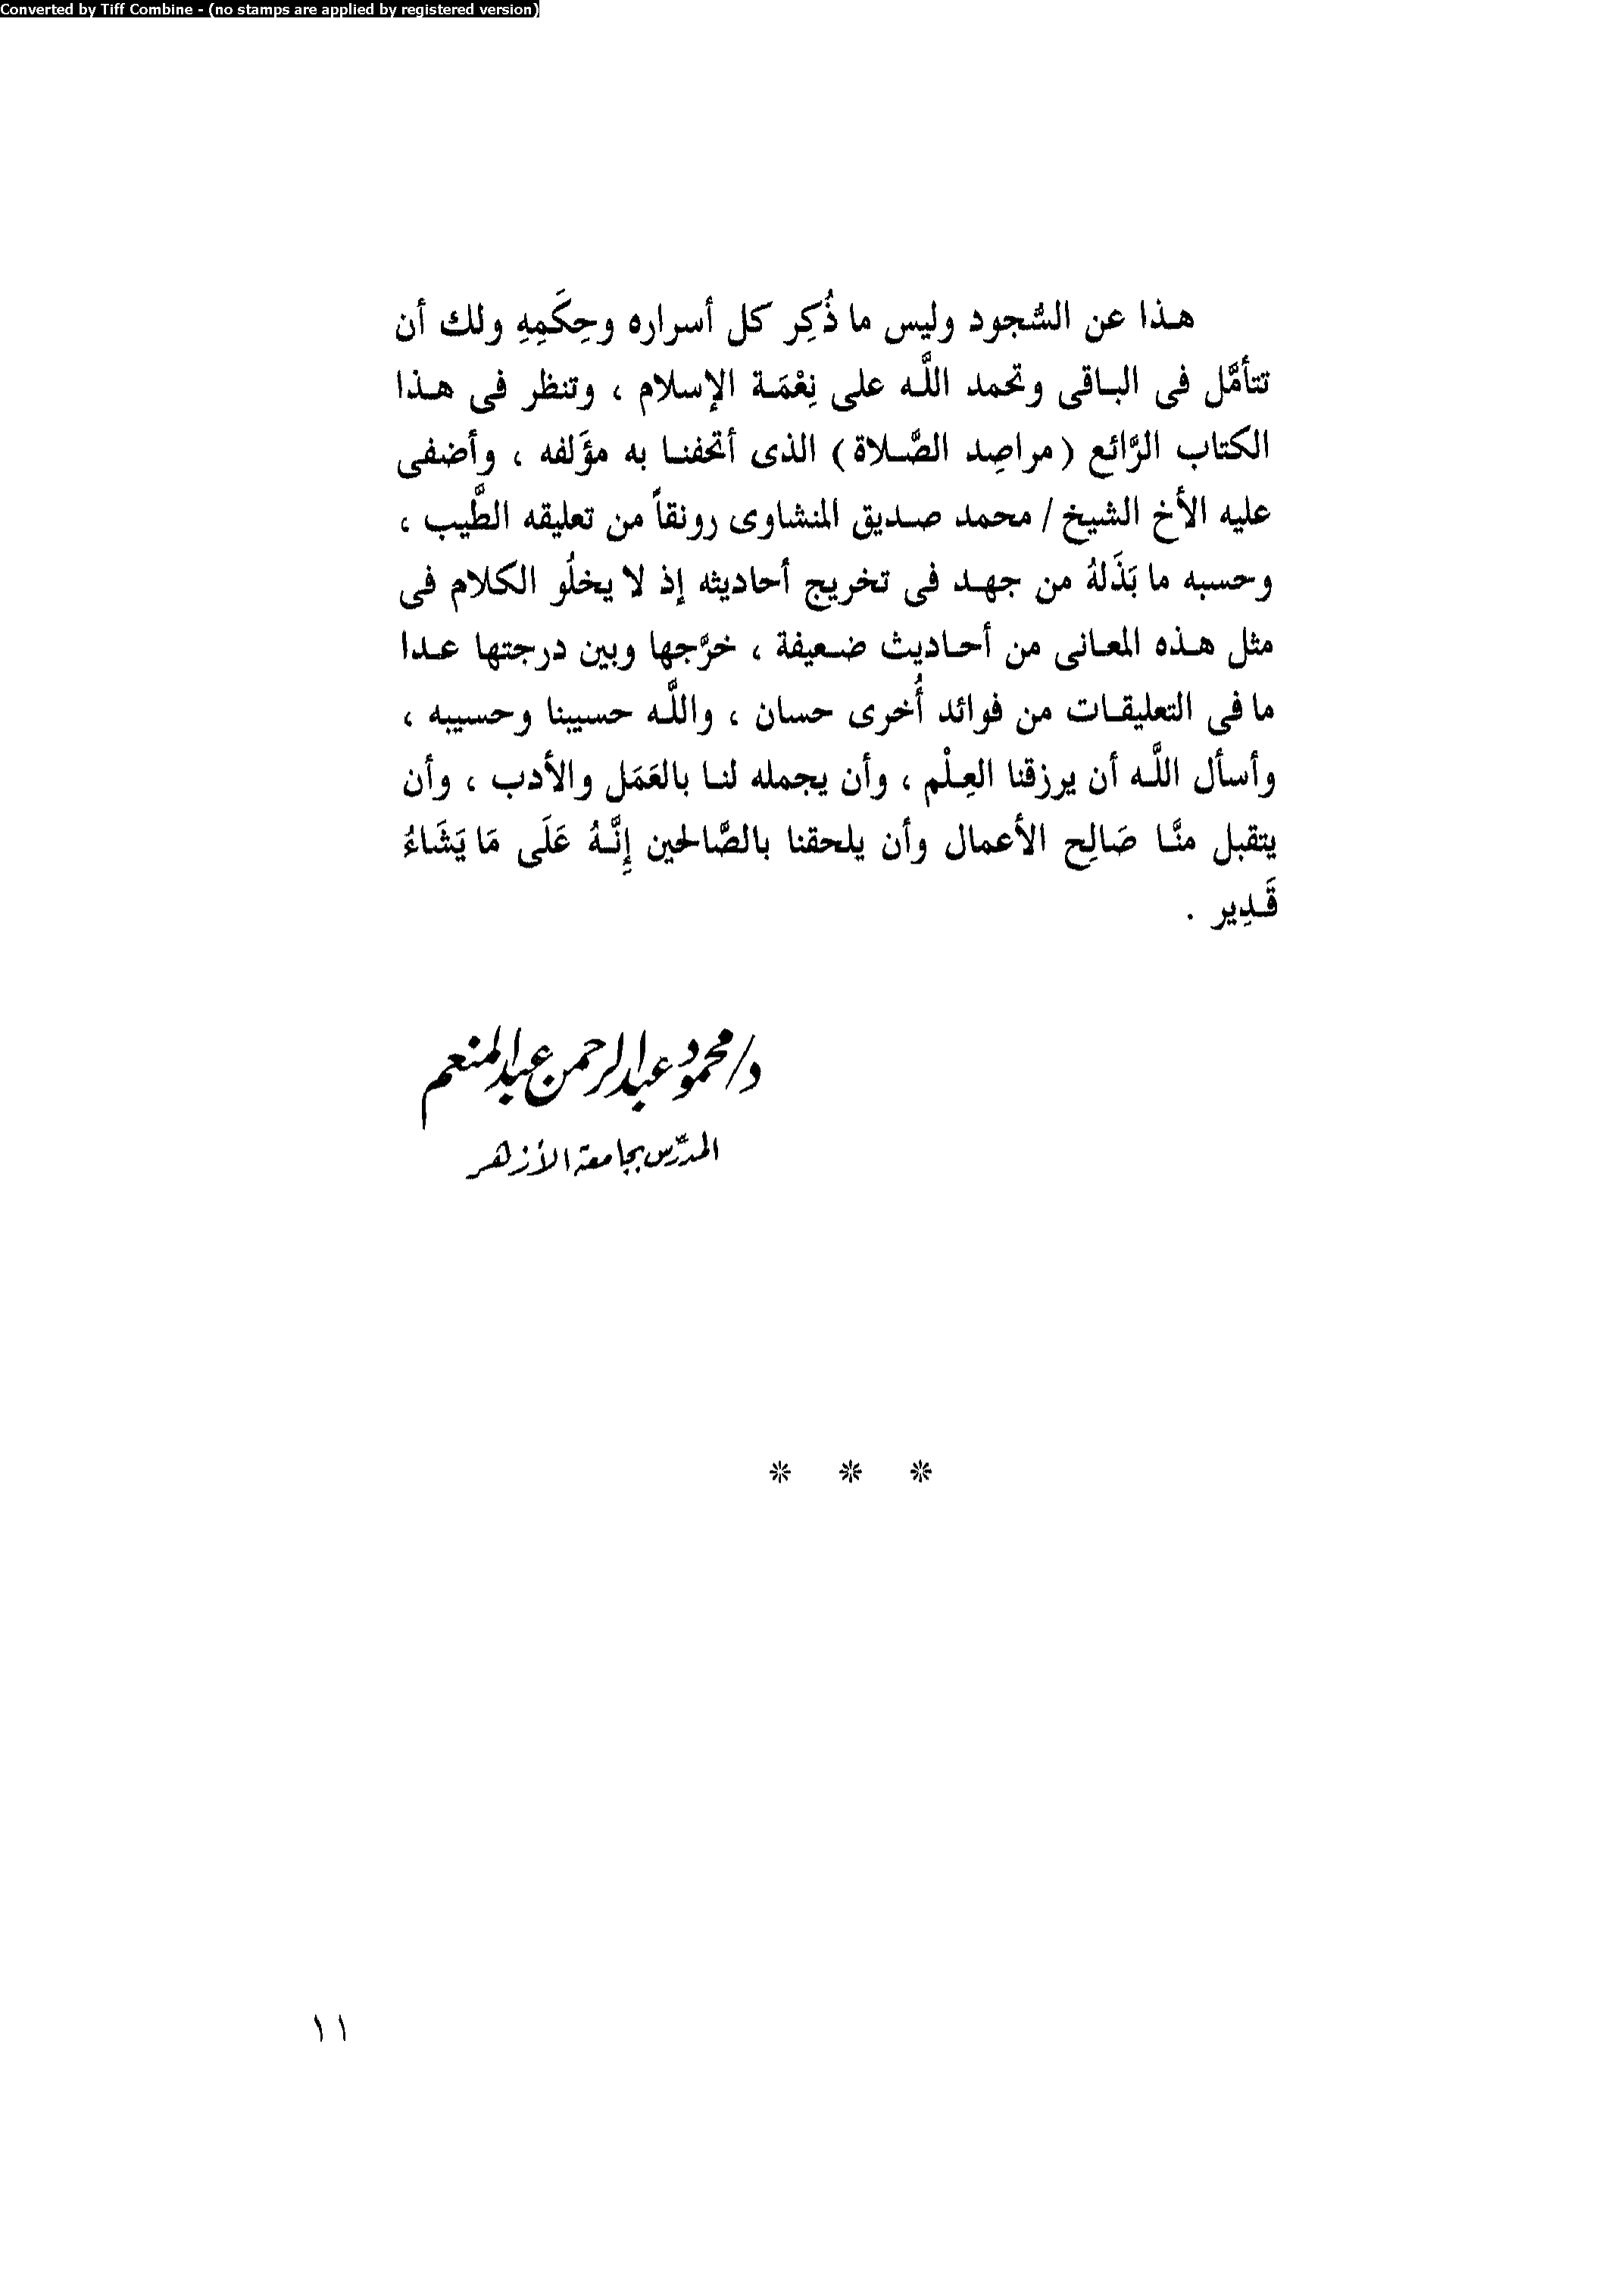 Converted by Tiff Combine - (no stamps are applied by registered version)
هـذا عن السُّجود وليس ما ذُكِر كل أسراره وحِكَمِهِ ولك أن
تتأمَّل فى البـاقى وتحمد اللَّـه على نِعْمَـة الإسلام ، وتنظر فى هـذا
الكتاب الرَّائع ( مراصِد الصَّـلاة ) الذى أتحفنـا به مؤَلفه ، وأضفى
عليه الأخ الشيخ / محمد صـديق المنشاوى رونقاً من تعليقه الطَّيب ،
وحسبه ما بَذَلهُ من جهـد فى تخريج أحاديثه إذ لا يخلُو الكلام فى
مثل هـذه المعـانى من أحـاديث ضـعيفة ، خرَّجها وبين درجتها عـدا
ما فى التعليقـات من فوائد أُخرى حسان ، واللَّـه حسيبنا وحسيبه ،
وأسأل اللَّـه أن يرزقنا العِـلْم ، وأن يجمله لنـا بالعَمَل والأدب ، وأن
يتقبل منَّـا صَالِح الأعمال وأن يلحقنا بالصَّالحين إِنَّـهُ عَلَى مَا يَشَاءُ
قَـدِير .
د/محمود عبد الرحمن عبد المنعم
المدرّس بجامعة الأزهر
* * *
١١